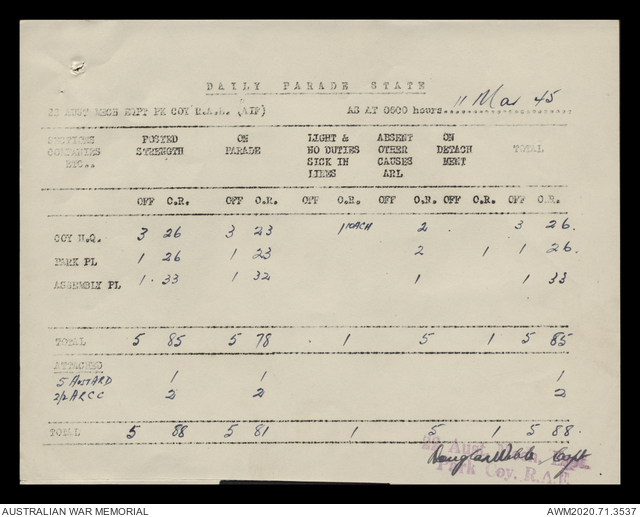 DAILY PARADE STATE
22 AUST MECH EQPT PK COY R.A.E. (AIF) AS AT 0600 hours 11 Mar 45
SECTIONS COMPANIES ETC.. POSTED STRENGTH ON PARADE LIGHT & NO DUTIES SICK IN LINES ABSENT OTHER CAUSES ARL ON DETACH MENT TOTAL
OFF O.R. OFF O.R. OFF O.R. OFF O.R. OFF O.R. OFF O.R.
COY H.Q. 3 26 3 23 1 2 3 26
PARK PL 1 26 1 23 2 1 1 26
ASSEMBLY PL 1 33 1 32 1 1 33
TOTAL 5 85 5 78 1 5 1 5 85
ATTACHED
5 AUST ARD 1 1 1
2/2 ARCC 2 2 2
TOTAL 5 88 5 81 1 5 1 5 88
22 Aust Mech. Eqpt.
Park Coy. R.A.E.
Capt
AUSTRALIAN WAR MEMORIAL AWM2020.71.3537